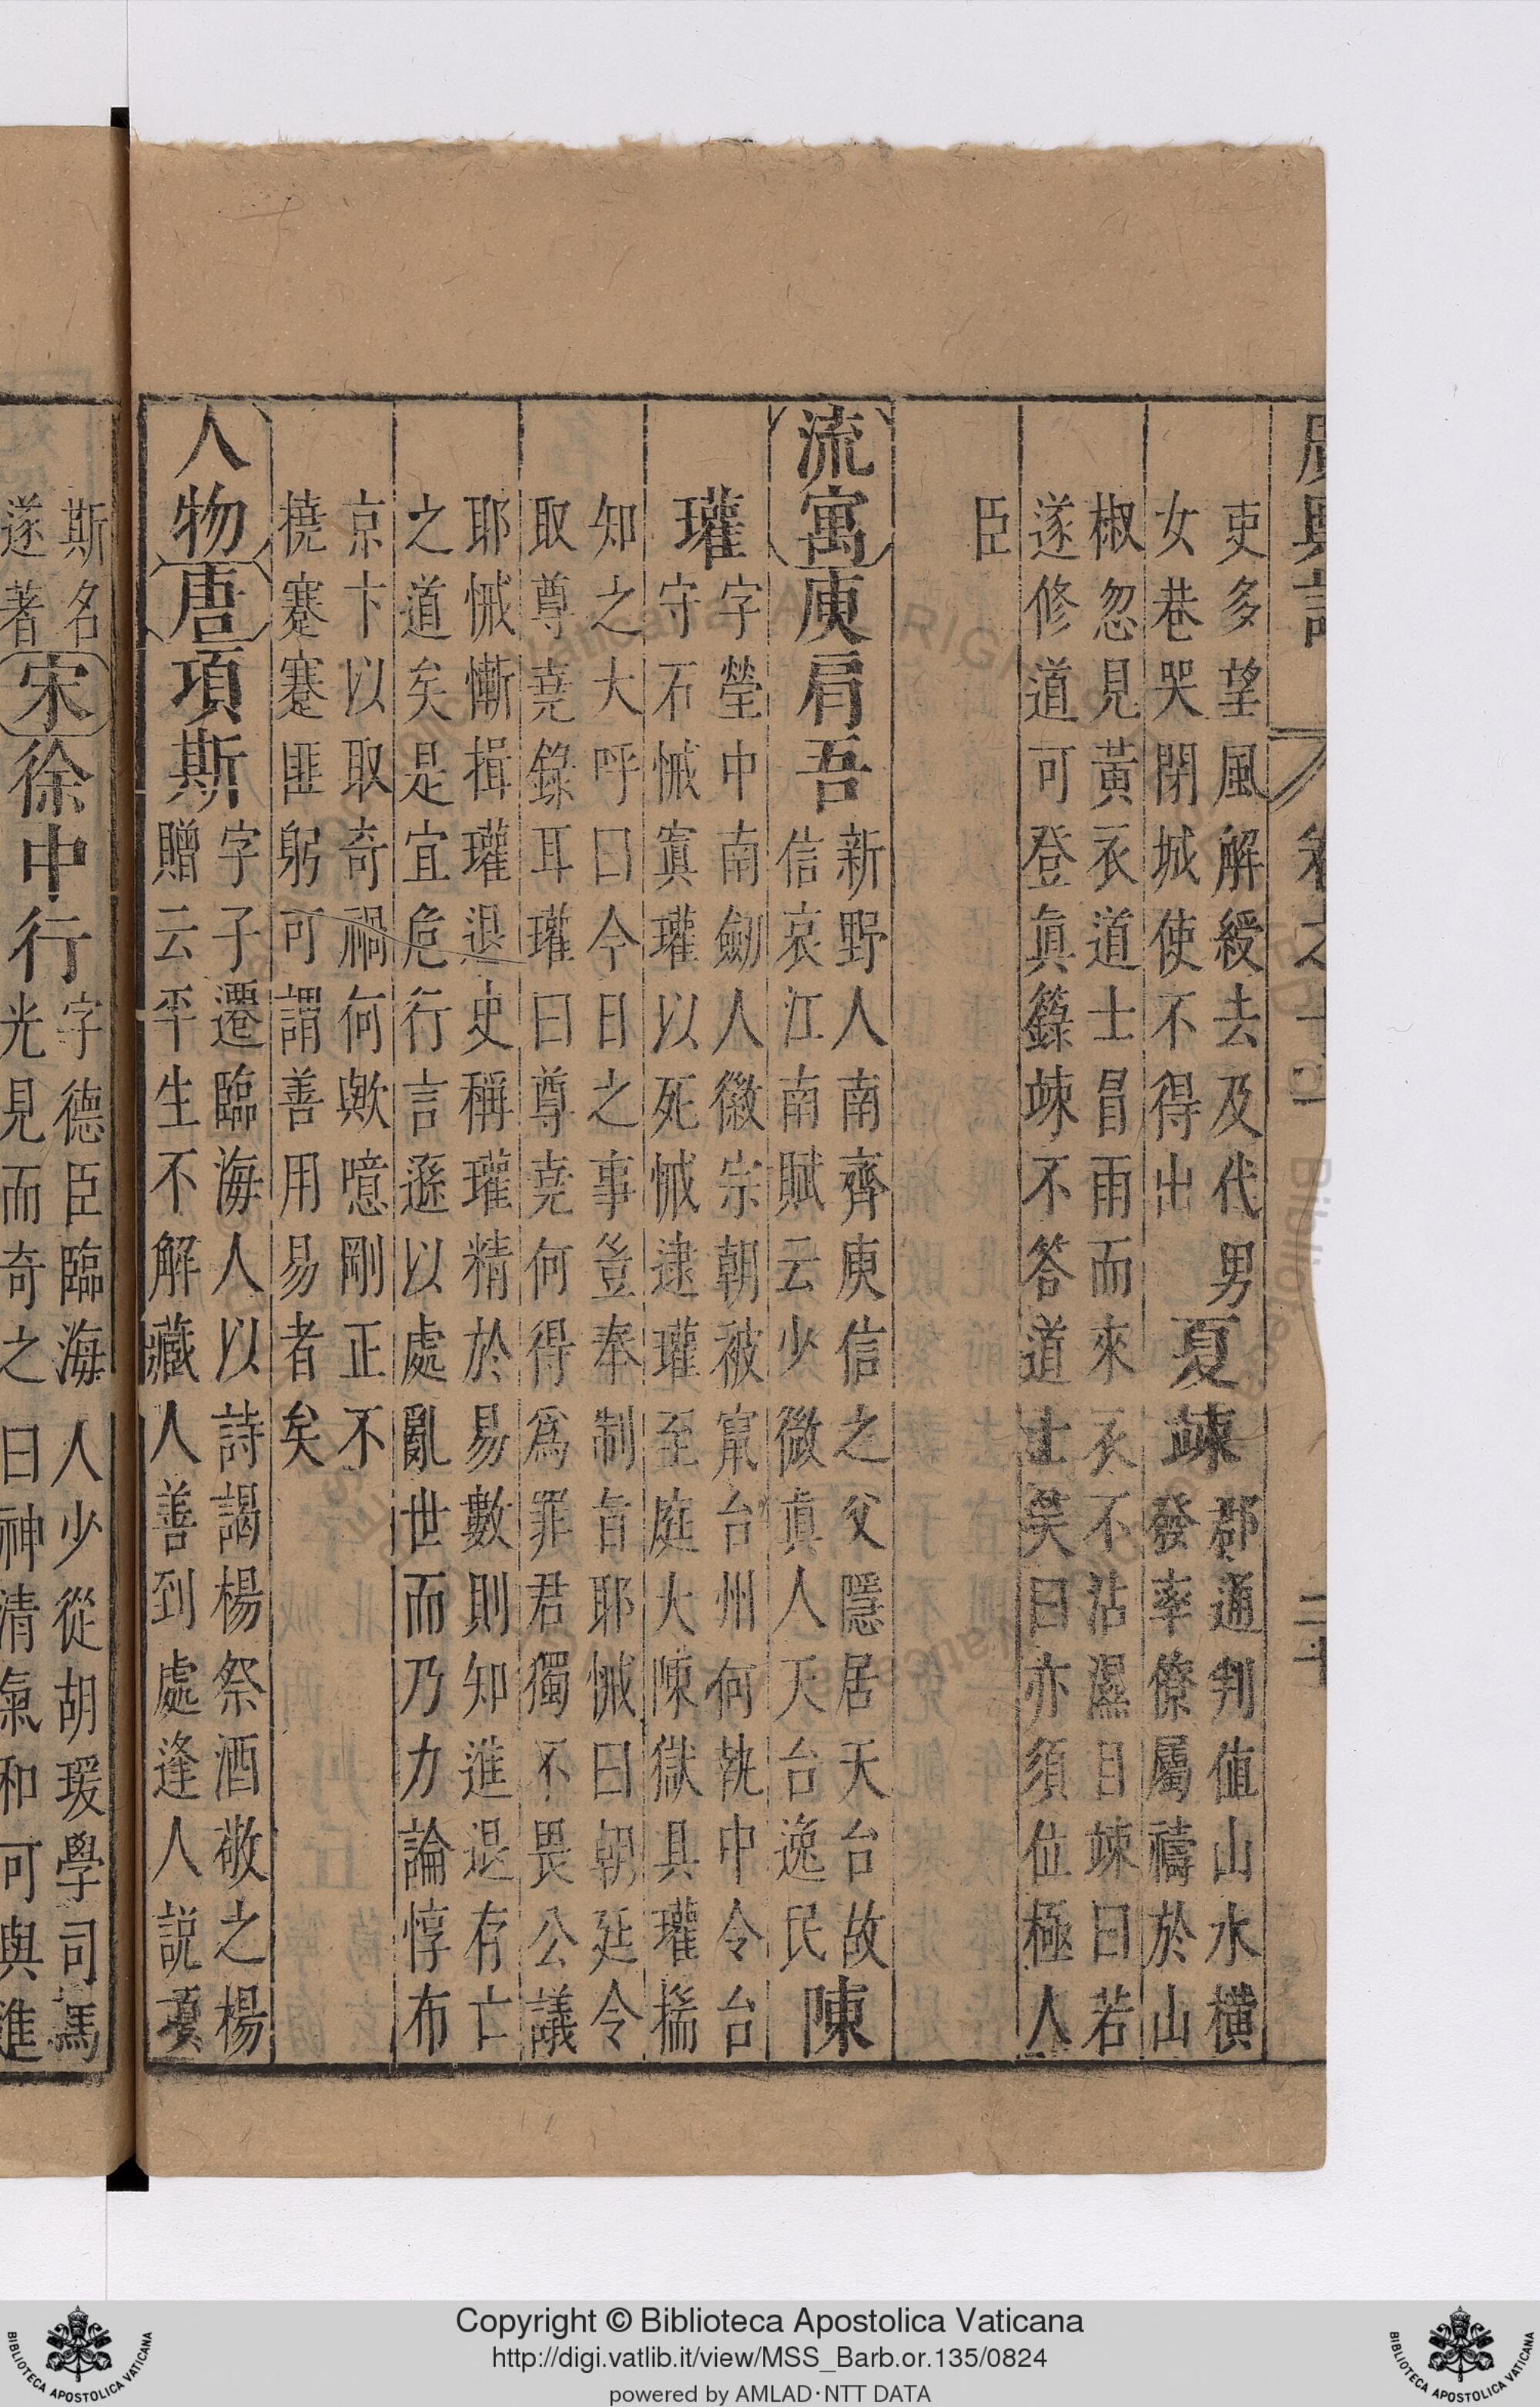 吏多望風解綬去及代男
女巷哭閉城使不得出
夏竦
郡通判值山水橫
發率僚屬禱於山
椒忽見黃衣道士冒雨而來衣不沾濕目竦曰若
遂修道可登眞籙竦不答道士笑曰亦須位極人
臣
流寓
庾肩吾
新野人南齊庾信之父隱居天台故
信哀江南賦云少微眞人天台逸民
陳
瓘
字瑩中南劒人徽宗朝被竄台州何執中令台
守石悈寘瓘以死悈逮瓘至庭大陳獄具瓘揣
知之大呼曰今日之事豈奉制旨耶悈曰朝廷令
取尊堯錄耳瓘曰尊堯何得爲罪君獨不畏公議
耶悈慚揖瓘退史稱瓘精於易數則知進退存亡
之道矣是宜危行言遜以處亂世而乃力論惇布
京卞以取奇禍何歟噫剛正不
撓蹇蹇匪躬可謂善用易者矣
人物
唐
項斯
字子遷臨海人以詩謁楊祭酒敬之楊
贈云平生不解藏人善到處逢人說項
斯名
遂著
宋
徐中行
字德臣臨海人少從胡瑗學司馬
光見而奇之曰神清氣和可與進
Copyright © Biblioteca Apostolica Vaticana
http://digi.vatlib.it/view/MSS_Barb.or.135/0824
powered by AMLAD·NTT DATA
BIBLIOTECA APOSTOLICA VATICANA
BIBLIOTECA APOSTOLICA VATICANA